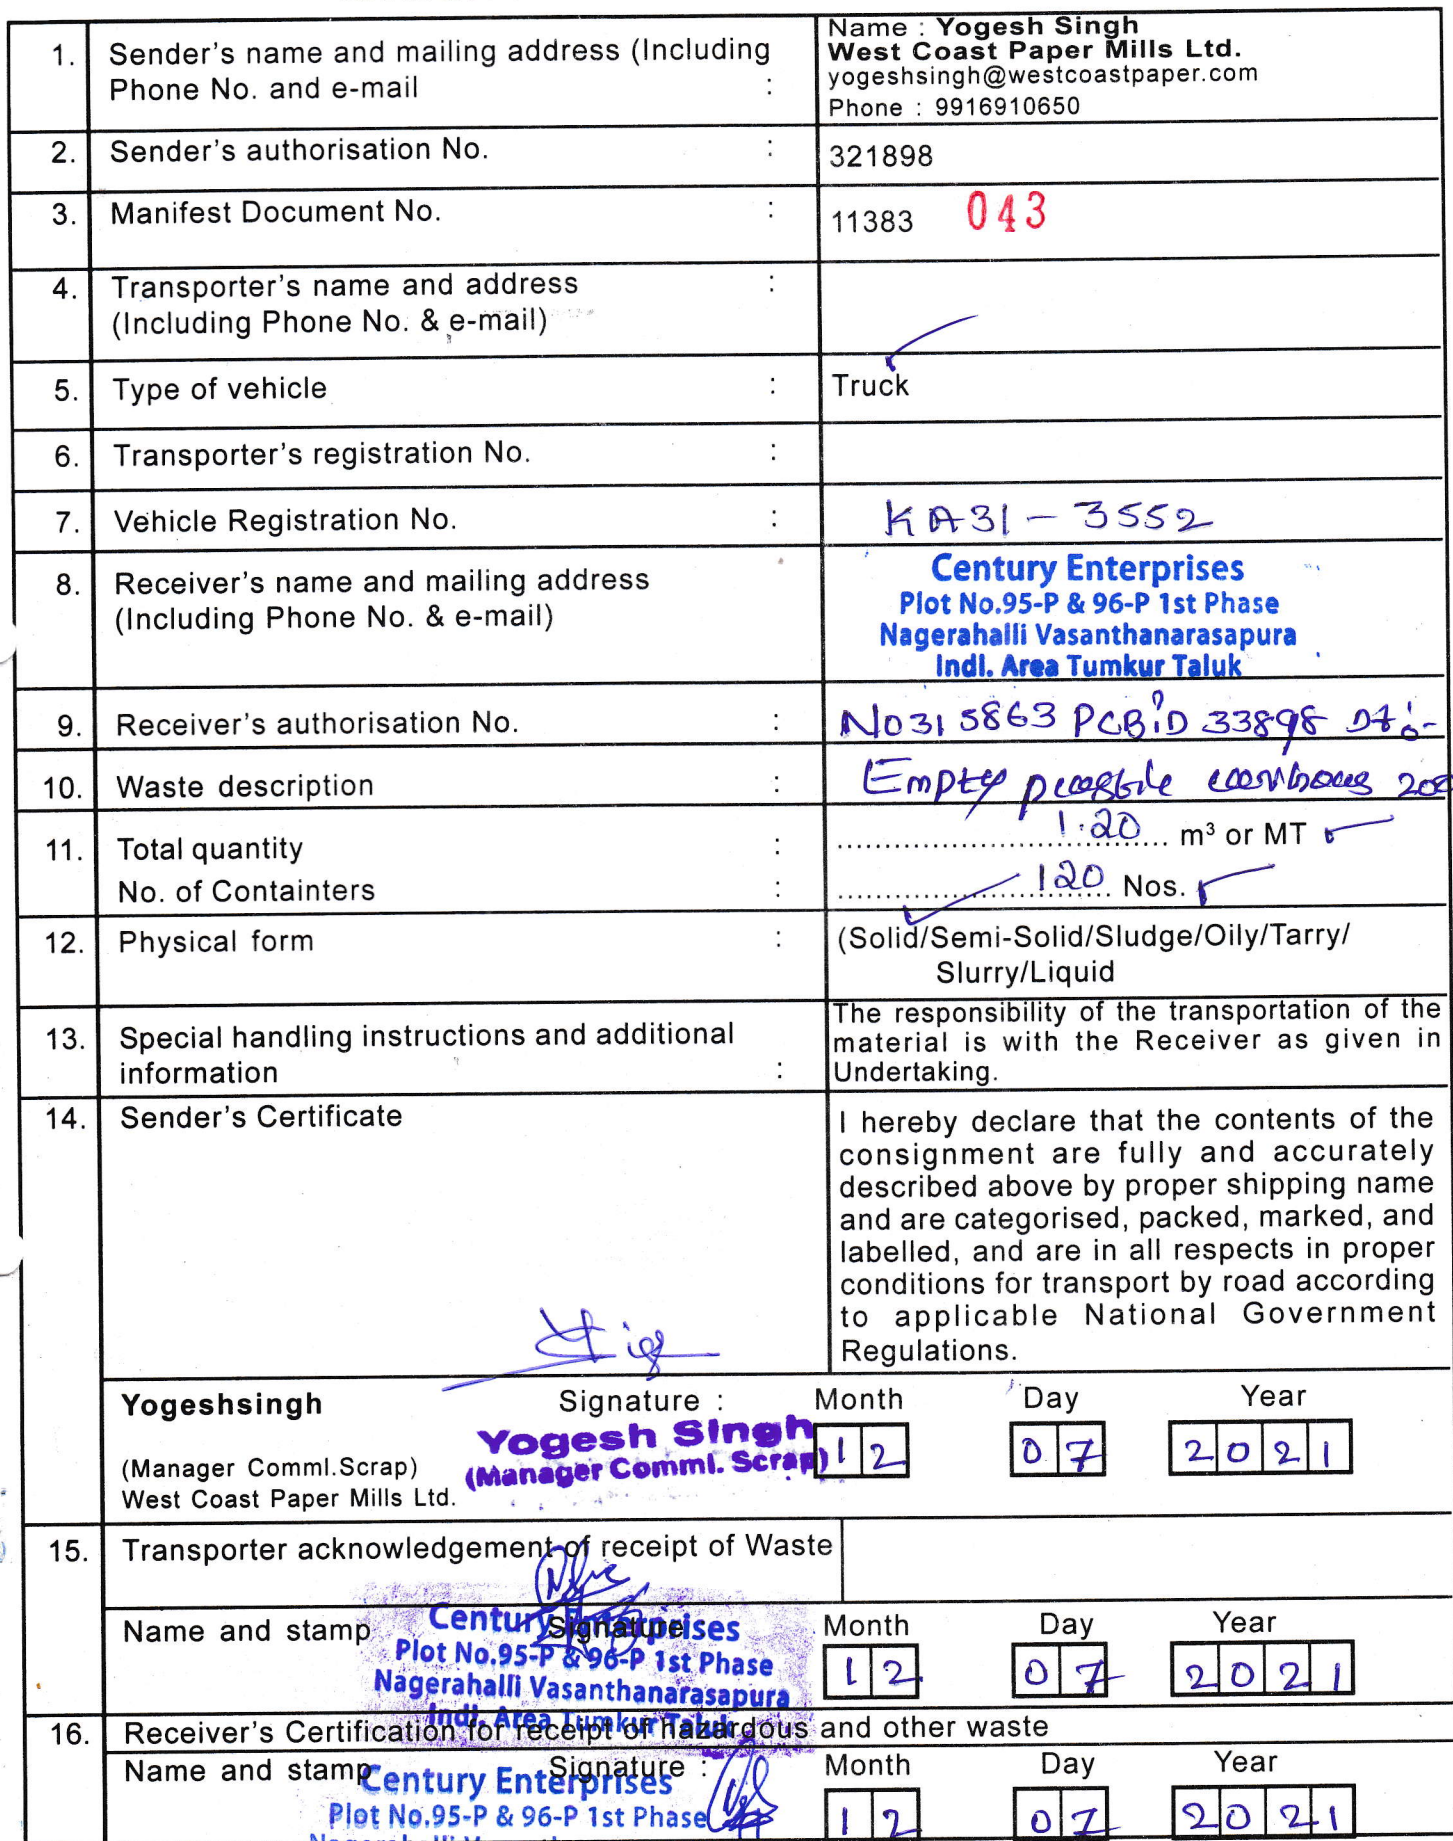 1. Sender's name and mailing address (Including
Phone No. and e-mail :
Name : Yogesh Singh
West Coast Paper Mills Ltd.
yogeshsingh@westcoastpaper.com
Phone : 9916910650
2. Sender's authorisation No. : 321898
3. Manifest Document No. : 11383 043
4. Transporter's name and address :
(Including Phone No. & e-mail)
5. Type of vehicle : Truck
6. Transporter's registration No. :
7. Vehicle Registration No. : KA31 - 3552
8. Receiver's name and mailing address
(Including Phone No. & e-mail)
Century Enterprises
Plot No.95-P & 96-P 1st Phase
Nagerahalli Vasanthanarasapura
Indl. Area Tumkur Taluk
9. Receiver's authorisation No. : No315863 PCBID 33898 Dt:-
10. Waste description : Empty
11. Total quantity : 1.20 m³ or MT
No. of Containters : 120 Nos.
12. Physical form : (Solid/Semi-Solid/Sludge/Oily/Tarry/
Slurry/Liquid
13. Special handling instructions and additional
information :
The responsibility of the transportation of the
material is with the Receiver as given in
Undertaking.
14. Sender's Certificate
I hereby declare that the contents of the
consignment are fully and accurately
described above by proper shipping name
and are categorised, packed, marked, and
labelled, and are in all respects in proper
conditions for transport by road according
to applicable National Government
Regulations.
Yogeshsingh Signature : Month Day Year
Yogesh Singh 12 07 2021
(Manager Comml.Scrap) (Manager Comml. Scrap)
West Coast Paper Mills Ltd.
15. Transporter acknowledgement of receipt of Waste
Name and stamp Signature Month Day Year
12 07 2021
Century Enterprises
Plot No.95-P & 96-P 1st Phase
Nagerahalli Vasanthanarasapura
Indl. Area Tumkur Taluk
16. Receiver's Certification for receipt of hazardous and other waste
Name and stamp Signature : Month Day Year
12 07 2021
Century Enterprises
Plot No.95-P & 96-P 1st Phase